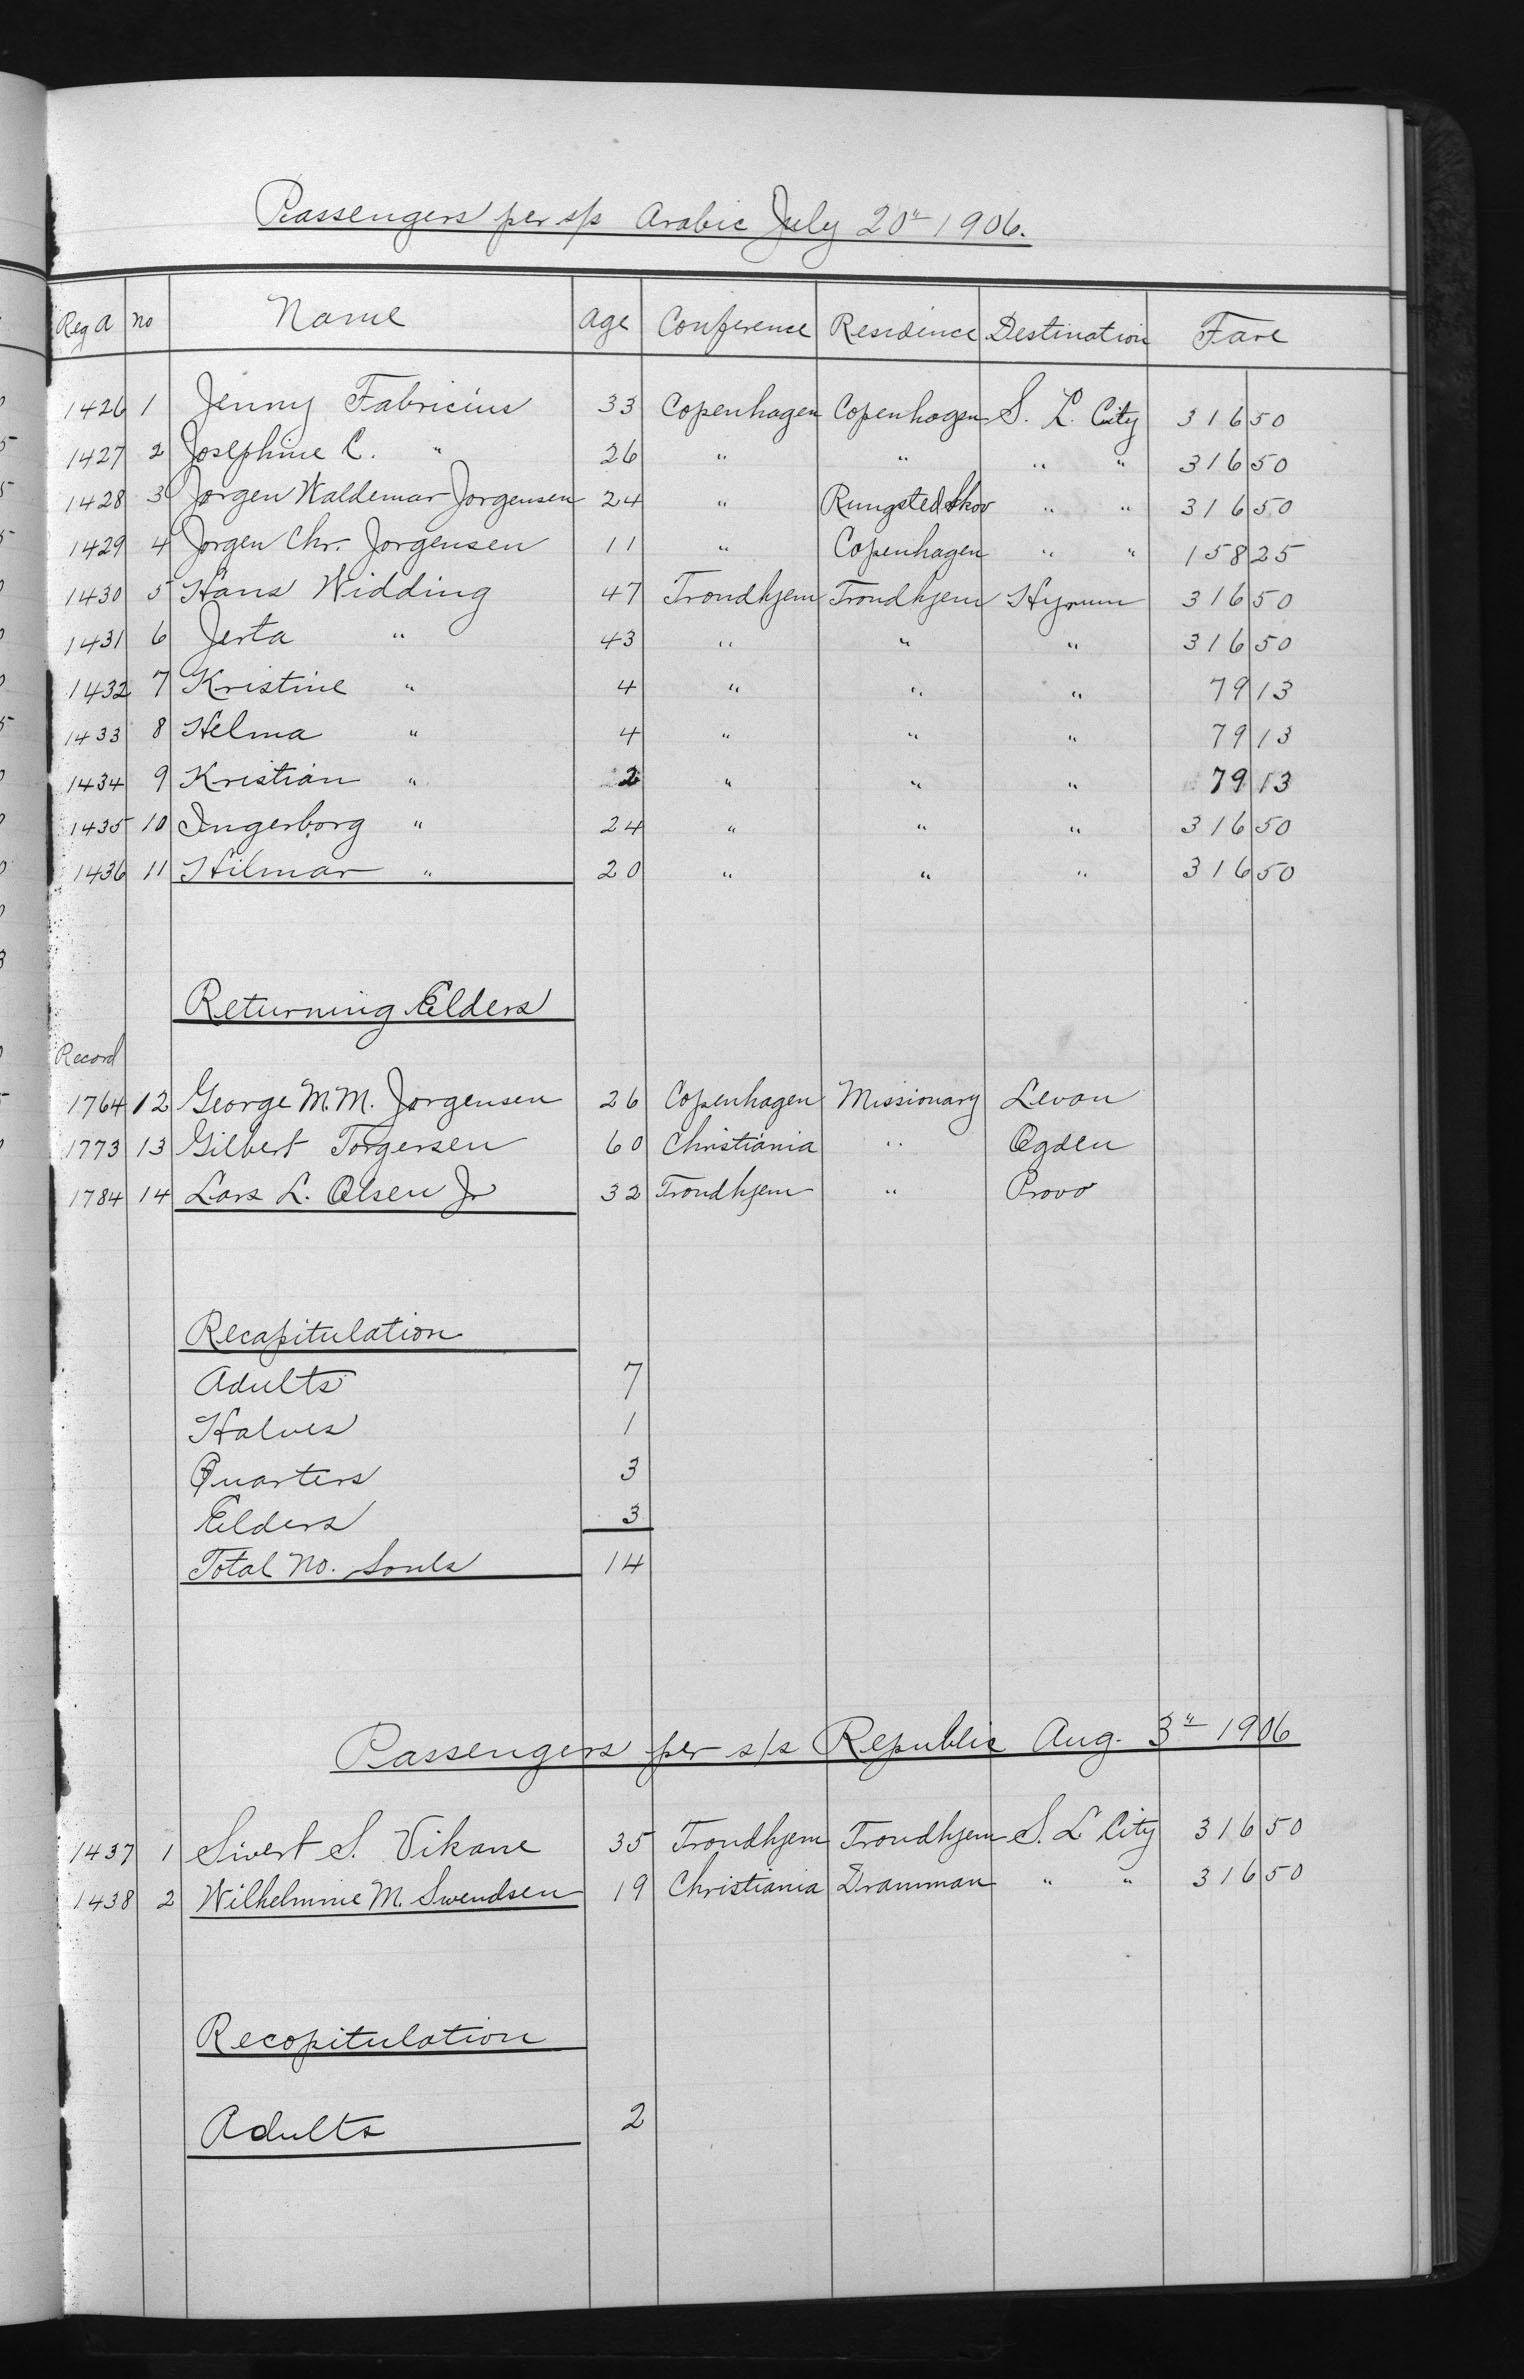 Passengers per s/s Arabic July 20" 1906.
Reg A No Name Age Conference Residence Destination Fare
1426 1 Jenny Fabricius 33 Copenhagen Copenhagen S. L. City 316 50
1427 2 Josephine C. " 26 " " " " 316 50
1428 3 Jorgen Waldemar Jorgensen 24 " Rungsted Skov " " 316 50
1429 4 Jorgen Chr. Jorgensen 11 " Copenhagen " " 158 25
1430 5 Hans Widding 47 Trondhjem Trondhjem Hyrum 316 50
1431 6 Jerta " 43 " " " 316 50
1432 7 Kristine " 4 " " " 79 13
1433 8 Helma " 4 " " " 79 13
1434 9 Kristian " 2 " " " 79 13
1435 10 Ingerborg " 24 " " " 316 50
1436 11 Hilmar " 20 " " " 316 50
Returning Elders
Record
1764 12 George M. M. Jorgensen 26 Copenhagen Missionary Levan
1773 13 Gilbert Torgersen 60 Christiania " Ogden
1784 14 Lars L. Olsen Jr 32 Trondhjem " Provo
Recapitulation
Adults 7
Halves 1
Quarters 3
Elders 3
Total No. Souls 14
Passengers per s/s Republic Aug. 3" 1906
1437 1 Sivert S. Vikane 35 Trondhjem Trondhjem S. L City 316 50
1438 2 Wilhelmine M. Swendsen 19 Christiania Dramman " " 316 50
Recapitulation
Adults 2